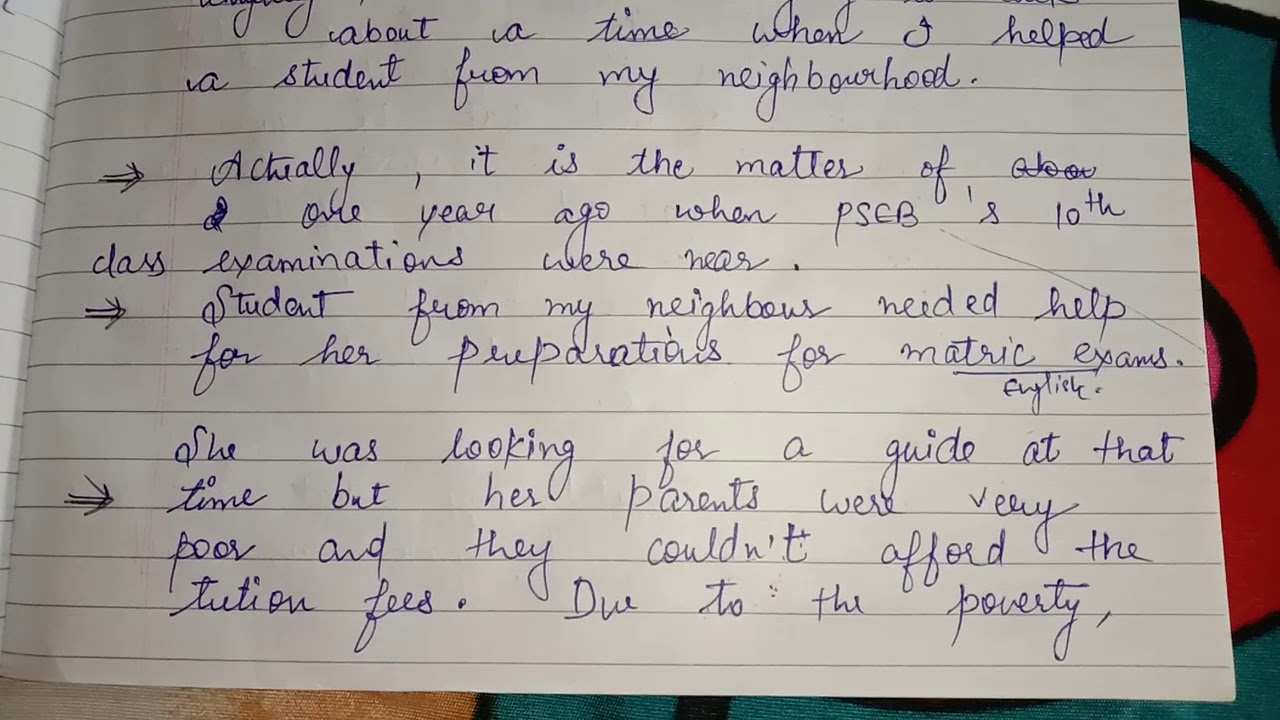 about a time when I helped
a student from my neighbourhood.
⇒ Actually, it is the matter of
one year ago when PSEB's 10th
class examinations were near.
⇒ Student from my neighbour needed help
for her preparations for matric exams.
English.
She was looking for a guide at that
⇒ time but her parents were very
poor and they couldn't afford the
tution fees. Due to the poverty,